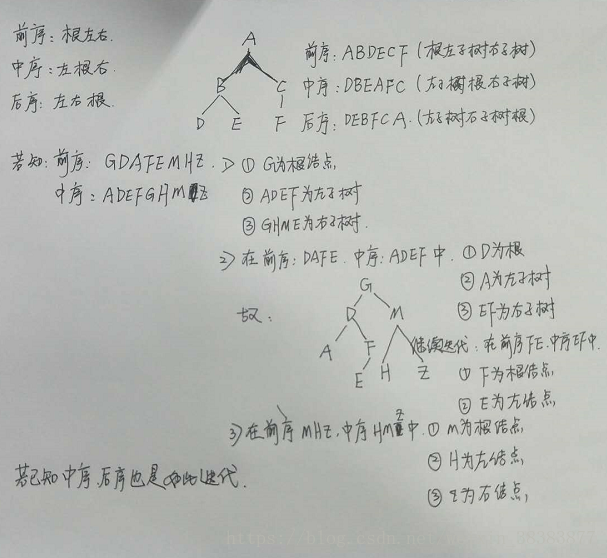 前序：根左右.
中序：左根右.
后序：左右根.
A
B C
D E F
前序：ABDECF（根左子树右子树）
中序：DBEAFC（左子树根右子树）
后序：DEBFCA.（左子树右子树根）
若知：前序：GDAFEMHZ.
中序：ADEFGHMZ
1> ① G为根结点，
② ADEF为左子树
③ GHME为右子树.
2> 在前序：DAFE. 中序：ADEF中. ① D为根
② A为左子树
③ EF为右子树
故：
G
D M
A F H Z
E
继续迭代：在前序FE.中序EF中.
① F为根结点，
② E为左结点，
3> 在前序MHZ，中序HMZ中. ① M为根结点，
② H为左结点，
③ Z为右结点，
若已知中序，后序也是如此迭代.